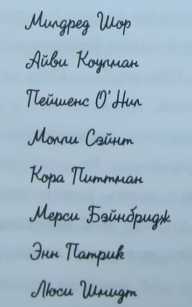 Милдред Шор
Айви Коулман
Пейшенс О'Нил
Молли Сэйнт
Кора Питтман
Мерси Бэйнбридж
Энн Патрик
Люси Шмидт